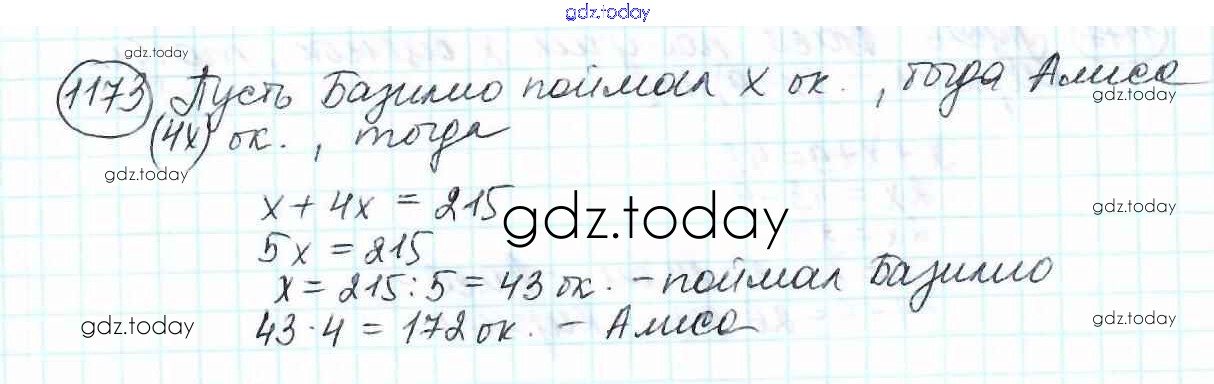 gdz.today
gdz.today
1173 Пусть Базилио поймал x ок., тогда Алиса
gdz.today
(4x) ок., тогда
gdz.today
x + 4x = 215
gdz.today
gdz.today
5x = 215
x = 215 : 5 = 43 ок. - поймал Базилио
gdz.today
43 · 4 = 172 ок. - Алиса
gdz.today